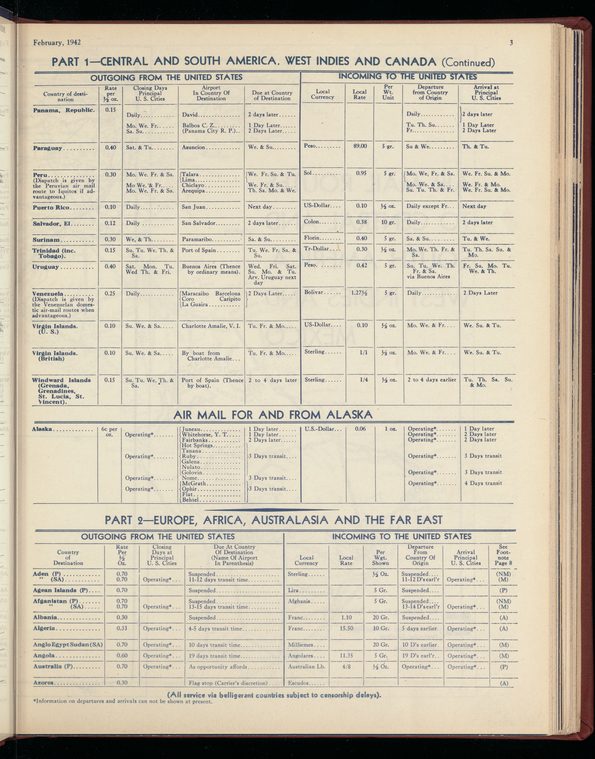 February, 1942
3
PART 1—CENTRAL AND SOUTH AMERICA, WEST INDIES AND CANADA (Continued)
OUTGOING FROM THE UNITED STATES
INCOMING TO THE UNITED STATES
Country of desti-nation
Rate per ½ oz.
Closing Days Principal U. S. Cities
Airport In Country Of Destination
Due at Country of Destination
Local Currency
Local Rate
Per Wt. Unit
Departure from Country of Origin
Arrival at Principal U. S. Cities
Panama, Republic. 0.15
Daily David 2 days later Daily 2 days later
Mo. We. Fr. Balboa C. Z. 1 Day Later Tu. Th. Su. 1 Day Later
Sa. Su. (Panama City R. P.) 2 Days Later Fr. 2 Days Later
Paraguay 0.40 Sat. & Tu. Asuncion We. & Su. Peso 89.00 5 gr. Su & We. Th. & Tu.
Peru 0.30 Mo. We. Fr. & Sa. Talara We. Fr. Su. & Tu. Sol 0.95 5 gr. Mo. We. Fr. & Sa. We. Fr. Su. & Mo.
(Dispatch is given by Lima
the Peruvian air mail Mo We. & Fr. Chiclayo We. Fr. & Su. Mo. We. & Sa. We. Fr. & Mo.
route to Iquitos if ad- Mo. We. Fr. & Sa. Arequipa Th. Sa. Mo. & We. Su. Tu. Th. & Fr. We. Fr. Su. & Mo.
vantageous.)
Puerto Rico 0.10 Daily San Juan Next day US-Dollar 0.10 ½ oz. Daily except Fr. Next day
Salvador, El 0.12 Daily San Salvador 2 days later Colon 0.38 10 gr. Daily 2 days later
Surinam 0.30 We, & Th. Paramaribo Sa. & Su. Florin 0.40 5 gr. Sa. & Su. Tu. & We.
Trinidad (inc. Tobago). 0.15 Su. Tu. We. Th. & Sa. Port of Spain Tu. We. Fr. Sa. & Su. Tr-Dollar 0.30 ½ oz. Mo. We. Th. Fr. & Sa. Tu. Th. Sa. Su. & Mo.
Uruguay 0.40 Sat. Mon. Tu. Wed Th. & Fri. Buenos Aires (Thence by ordinary means) Wed. Fri. Sat. Su. Mo. & Tu. Arv. Uruguay next day Peso 0.42 5 gr. Su. Tu. We. Th. Fr. & Sa. via Buenos Aires Fr. Su. Mo. Tu. We. & Th.
Venezuela 0.25 Daily Maracaibo Barcelona 2 Days Later Bolivar 1.27½ 5 gr. Daily 2 Days Later
(Dispatch is given by Coro Caripito
the Venezuelan domes- La Guaira
tic air-mail routes when
advantageous.)
Virgin Islands. (U. S.) 0.10 Su. We. & Sa. Charlotte Amalie, V. I. Tu. Fr. & Mo. US-Dollar 0.10 ½ oz. Mo. We. & Fr. We. Sa. & Tu.
Virgin Islands. (British) 0.10 Su. We. & Sa. By boat from Charlotte Amalie Tu. Fr. & Mo. Sterling 1/1 ½ oz. Mo. We. & Fr. We. Sa. & Tu.
Windward Islands (Grenada, Grenadines, St. Lucia, St. Vincent). 0.15 Su. Tu. We. Th. & Sa. Port of Spain (Thence by boat). 2 to 4 days later Sterling 1/4 ½ oz. 2 to 4 days earlier Tu. Th. Sa. Su. & Mo.
AIR MAIL FOR AND FROM ALASKA
Alaska 6c per oz. Operating* Juneau 1 Day Later U.S.-Dollar 0.06 1 oz. Operating* 1 Day Later
Whitehorse, Y. T. 1 Day Later Operating* 2 Days Later
Fairbanks 2 Days Later Operating* 2 Days Later
Hot Springs
Tanana
Operating* Ruby 3 Days transit Operating* 3 Days transit
Galena
Nulato
Golovin Operating* 3 Days transit
Operating* Nome 3 Days transit
McGrath Operating* 4 Days transit
Operating* Ophir 3 Days transit
Flat
Bethel
PART 2—EUROPE, AFRICA, AUSTRALASIA AND THE FAR EAST
OUTGOING FROM THE UNITED STATES
INCOMING TO THE UNITED STATES
Country of Destination
Rate Per ½ Oz.
Closing Days at Principal U. S. Cities
Due At Country Of Destination (Name Of Airport In Parenthesis)
Local Currency
Local Rate
Per Wgt. Shown
Departure From Country Of Origin
Arrival Principal U. S. Cities
See Foot-note Page 8
Aden (P) 0.70 Suspended Sterling ½ Oz. Suspended (NM)
" (SA) 0.70 Operating* 11-12 days transit time 11-12 D'searl'r Operating* (M)
Agean Islands (P) 0.70 Suspended Lira 5 Gr. Suspended (P)
Afganistan (P) 0.70 Suspended Afghania 5 Gr. Suspended (NM)
" (SA) 0.70 Operating* 13-15 days transit time 13-14 D'searl'r Operating* (M)
Albania 0.30 Suspended Franc 1.10 20 Gr. Suspended (A)
Algeria 0.15 Operating* 4-5 days transit time Franc 15.50 10 Gr. 5 days earlier Operating* (A)
Anglo Egypt Sudan (SA) 0.70 Operating* 10 days transit time Milliemes 20 Gr. 10 D's earlier Operating* (M)
Angola 0.60 Operating* 19 days transit time Angolares 11.35 5 Gr. 19 D's earl'r Operating* (M)
Australia (P) 0.70 Operating* As opportunity affords Australian Lb. 4/8 ½ Oz. Operating* Operating* (P)
Azores 0.30 Flag stop (Carrier's discretion) Escudos (A)
(All service via belligerant countries subject to censorship delays).
*Information on departures and arrivals can not be shown at present.